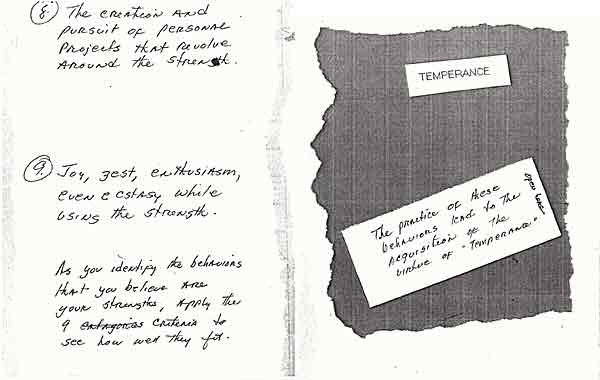 8. The creation and
pursuit of personal
projects that revolve
around the strength.
9. Joy, zest, enthusiasm,
even ecstasy while
using the strength.
As you identify the behaviors
that you believe are
your strengths, apply the
9 categories criteria to
see how well they fit.
TEMPERANCE
open here
The practice of these
behaviors lead to the
acquisition of the
virtue of "Temperance"